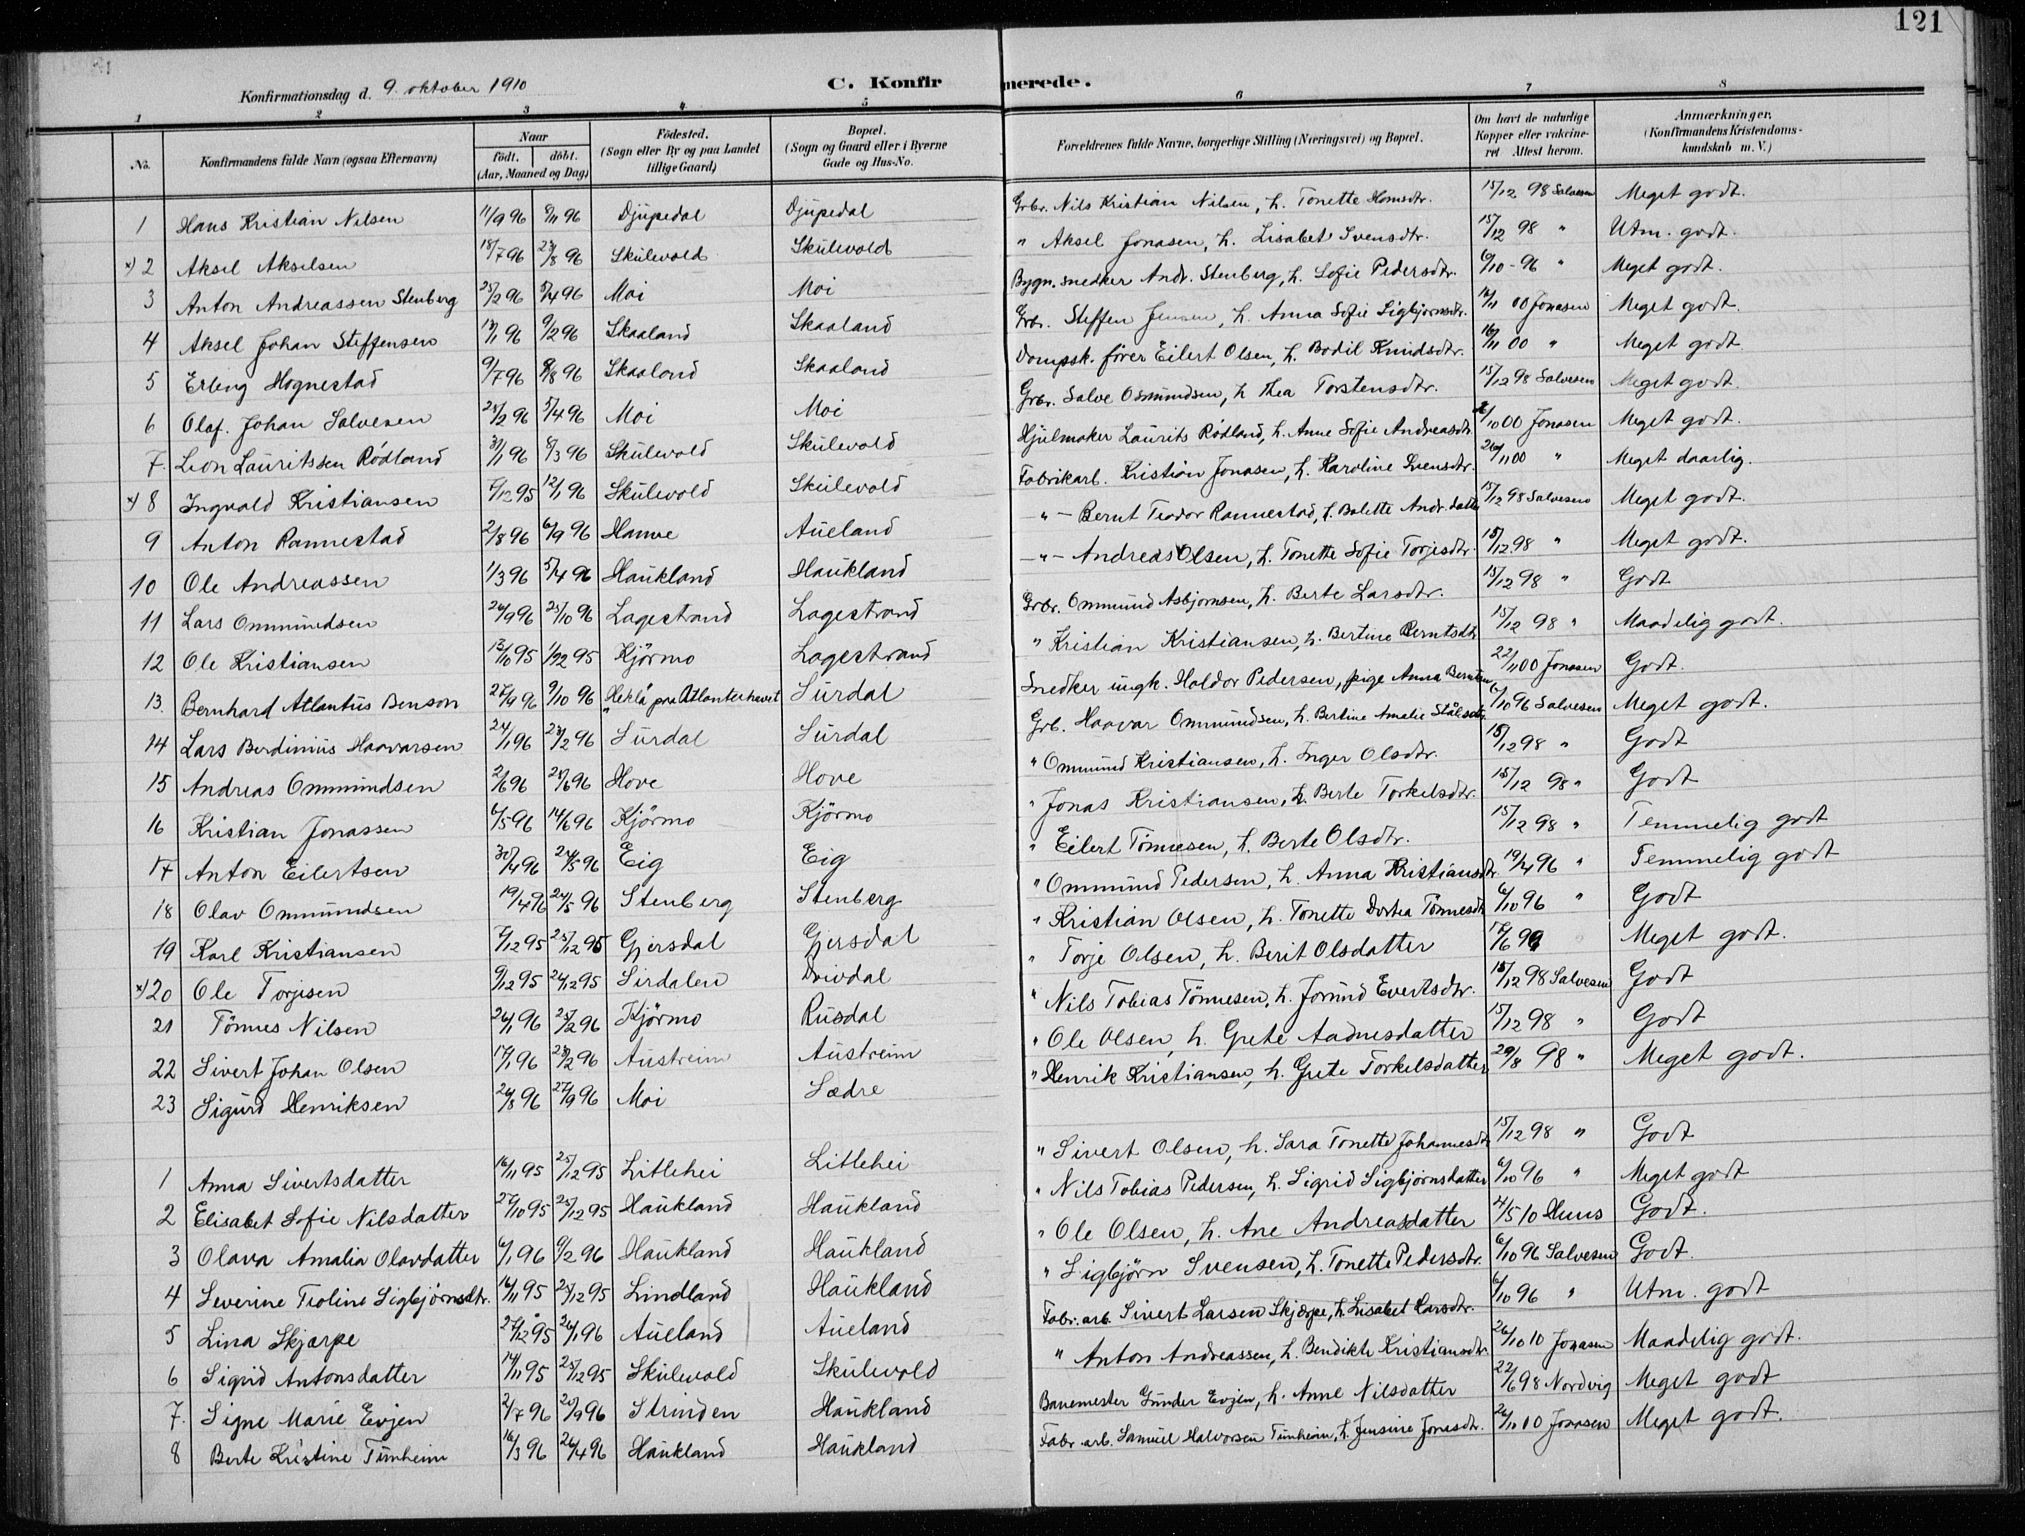 121
Konfirmationsdag d. 9. oktober 1910
C. Konfirmerede.
1 2 3 4 5 6 7 8
No. Konfirmandens fulde Navn (ogsaa Efternavn) Naar født. døbt. (Aar, Maaned og Dag) Fødested. (Sogn eller By og paa Landet tillige Gaard) Bopæl. (Sogn og Gaard eller i Byerne Gade og Hus-No. Forældrenes fulde Navne, borgerlige Stilling (Næringsvei) og Bopæl. Om havt de naturlige Kopper eller vakcineret Attest herom. Anmærkninger. (Konfirmandens Kristendomskundskab m. V.)
1 Hans Kristian Nilsen 11/9 96 8/11 96 Djupedal Djupedal Grbr. Nils Kristian Nilsen, h. Tonette Hansdtr. 15/12 98 Salvesen Meget godt.
x) 2 Aksel Akselsen 18/7 96 23/8 96 Skulevold Skulevold " Aksel Jonasen, h. Lisabet Svensdtr. 15/12 98 " Utm. godt.
3 Anton Andreassen Stenberg 25/2 96 5/4 96 Moi Moi Bygn. snedker Andr. Stenberg, h. Sofie Pedersdtr. 6/10 - 96 " Meget godt.
4 Aksel Johan Steffensen 13/1 96 9/2 96 Skaaland Skaaland Grbr. Steffen Jensen, h. Anna Sofie Sigbjørnsdtr. 16/11 00 Jonasen Meget godt.
5 Erling Hognestad 9/7 96 9/8 96 Skaaland Skaaland Dampsk. fører Eilert Olsen, h. Bodil Knudsdtr. 16/11 00 " Meget godt
6 Olaf. Johan Salvesen 25/2 96 5/4 96 Moi Moi Grbr. Salve Osmundsen, h Thea Torstensdtr. 15/12 98 Salvesen Meget godt.
7. Leon Lauritssen Rødland 31/1 96 8/3 96 Skulevold Skulevold Hjulmaker Laurits Rødland, h. Anne Sofie Andreasdtr. /10 00 Jonasen Meget godt.
x) 8 Ingvald Kristiansen 9/12 95 12/1 96 Skulevold Skulevold Fabrikarb. Kristian Jonasen, h. Karoline Svensdtr. 26/11 00 " Meget daarlig.
9 Anton Rannestad 2/8 96 6/9 96 Hamre Aueland - " - Bernt Teodor Rannestad, h. Bolette Andr. datter 15/12 98 Salvesen Meget godt.
10 Ole Andreassen 1/3 96 5/4 96 Haukland Haukland - " - Andreas Olsen, h. Tonette Sofie Torjesdtr. 15/12 98 " Meget godt.
11 Lars Ommundsen 26/9 96 25/10 96 Lagestrand Lagestrand Grbr. Ommund Asbjørnsen, h. Berte Larsdtr. 15/12 98 " Godt
12 Ole Kristiansen 13/10 95 1/12 95 Kjørmo Lagestrand " Kristian Kristiansen, h. Bertine Berntsdtr 15/12 98 " Maadelig godt.
13. Bernhard Atlantus Benson 27/9 96 9/10 96 "Hekla" paa Atlanterhavet Surdal Snedker ungk. Haldor Pedersen, pige Anna Berntsen 22/11 00 Jonasen Godt.
14 Lars Berdinius Haavarsen 24/1 96 23/2 96 Surdal Surdal Grb. Haavar Ommundsen, h. Bertine Amalie Stålsdtr. 6/10 96 Salvesen Meget godt.
15 Andreas Ommundsen 2/6 96 28/6 96 Hove Hove " Ommund Kristiansen, h. Inger Olsdtr. 15/12 98 " Godt
16 Kristian Jonassen 6/5 96 14/6 96 Kjørmo Kjørmo " Jonas Kristiansen, h. Berte Torkelsdtr. 15/12 98 " Godt
17 Anton Eilertsen 30/4 96 24/5 96 Eig Eig " Eilert Tønnesen, h. Berte Olsdtr. 15/12 98 " Temmelig godt
18 Olav Ommundsen 19/4 96 24/5 96 Stenberg Stenberg " Ommund Pedersen, h. Anna Kristiansdtr. 19/4 96 " Temmelig godt
19 Karl Kristiansen 7/12 95 25/12 95 Gjersdal Gjersdal " Kristian Olsen, h. Tonette Dortea Tønnesdtr 6/10 96 " Godt
x) 20 Ole Torjesen 9/12 95 26/12 95 Sirdalen Drivdal " Torje Olsen, h. Berit Olsdatter 19/6 99 Meget godt.
21 Tønnes Nilsen 26/1 96 23/2 96 Kjørmo Rusdal " Nils Tobias Tønnesen, h. Jorund Evertsdtr. 15/12 98 Salvesen Godt
22 Sivert Johan Olsen 17/1 96 23/2 96 Austreim Austreim " Ole Olsen, h. Grete Aadnesdatter 15/12 98 " Godt
23 Sigurd Henriksen 26/8 96 27/9 96 Moi Sædre " Henrik Kristiansen, h. Grete Torkelsdatter 29/8 98 " Meget godt.
1 Anna Sivertsdatter 16/11 95 25/12 95 Litlehei Litlehei " Sivert Olsen, h. Sara Tonette Johannesdtr 15/12 98 " Godt
2 Elisabet Sofie Nilsdatter 27/10 95 25/12 95 Haukland Haukland " Nils Tobias Pedersen, h. Sigrid Sigbjørnsdatter 6/10 96 " Meget godt
3 Olava Amalia Olavdatter 6/1 96 9/2 96 Haukland Haukland " Ole Olsen, h. Ane Andreasdatter 4/5 10 Huus Godt.
4 Severine Teoline Sigbjørnsdtr. 16/11 95 25/12 95 Lindland Haukland " Sigbjørn Svensen, h. Tonette Pedersdtr. 6/10 96 Salvesen Godt.
5 Lina Skjærpe 27/12 95 26/1 96 Aueland Aueland Fabr. arb. Sivert Larsen Skjærpe, h. Lisabet Larsdtr. 6/10 96 " Utm. godt
6 Sigrid Antonsdatter 14/11 95 25/12 95 Skulevold Skulevold " Anton Andreassen, h. Bendikte Kristiansdtr. 26/10 10 Jonasen Maadelig godt.
7. Signe Marie Evjen 2/7 96 20/9 96 Strinden Haukland Banemester Gunder Evjen, h. Anne Nilsdatter 22/6 98 Nordvig Meget godt
8 Berte Kristine Tunheim 16/3 96 26/4 96 Haukland Haukland Fabr. arb. Samuel Halvorsen Tunheim, h. Jensine Jonasdtr. 26/10 10 Jonasen Meget godt.